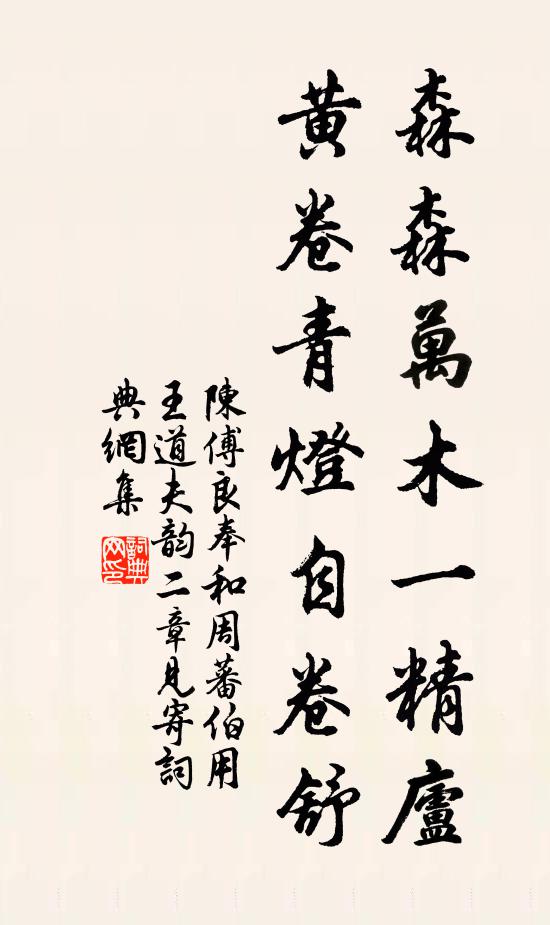 森森萬木一精廬
黃卷青燈自卷舒
陳傅良奉和周蕃伯用
王道夫韵二章見寄詞
典網集
詞典网印